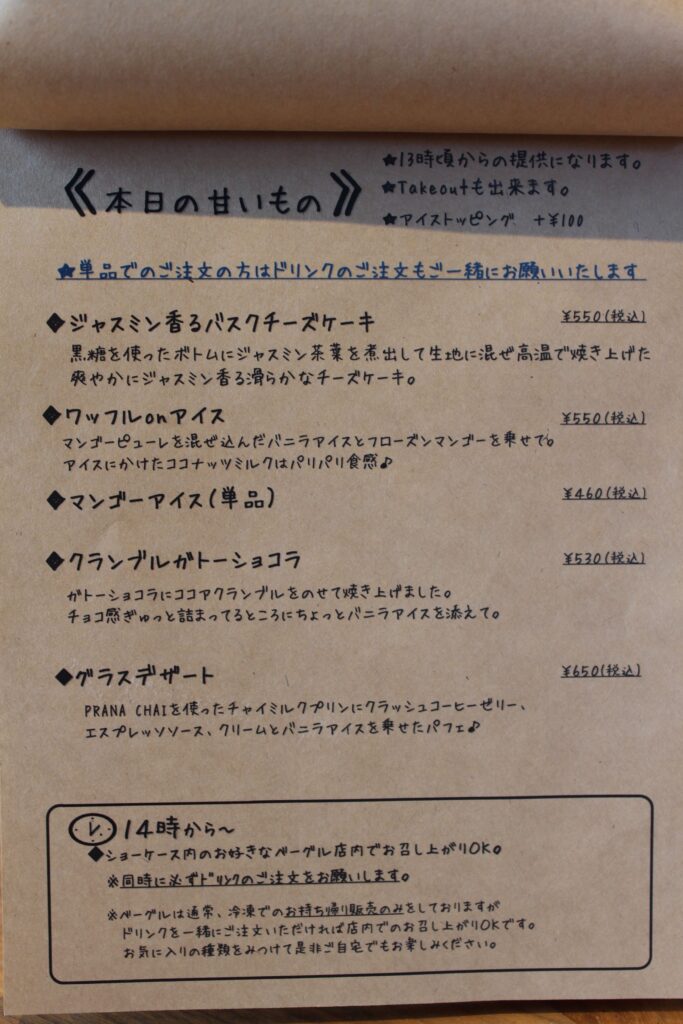 《本日の甘いもの》
★13時頃からの提供になります。
★Takeoutも出来ます。
★アイストッピング ＋¥100
★単品でのご注文の方はドリンクのご注文もご一緒にお願いいたします
◆ジャスミン香るバスクチーズケーキ ¥550(税込)
黒糖を使ったボトムにジャスミン茶葉を煮出して生地に混ぜ高温で焼き上げた
爽やかにジャスミン香る滑らかなチーズケーキ。
◆ワッフルonアイス ¥550(税込)
マンゴーピューレを混ぜ込んだバニラアイスとフローズンマンゴーを乗せて。
アイスにかけたココナッツミルクはパリパリ食感♪
◆マンゴーアイス(単品) ¥460(税込)
◆クランブルガトーショコラ ¥530(税込)
ガトーショコラにココアクランブルをのせて焼き上げました。
チョコ感ぎゅっと詰まってるところにちょっとバニラアイスを添えて。
◆グラスデザート ¥650(税込)
PRANA CHAIを使ったチャイミルクプリンにクラッシュコーヒーゼリー、
エスプレッソソース、クリームとバニラアイスを乗せたパフェ♪
14時から～
◆ショーケース内のお好きなベーグル店内でお召し上がりOK。
※同時に必ずドリンクのご注文をお願いします。
※ベーグルは通常、冷凍でのお持ち帰り販売のみをしておりますが
ドリンクを一緒にご注文いただければ店内でのお召し上がりOKです。
お気に入りの種類をみつけて是非ご自宅でもお楽しみください。